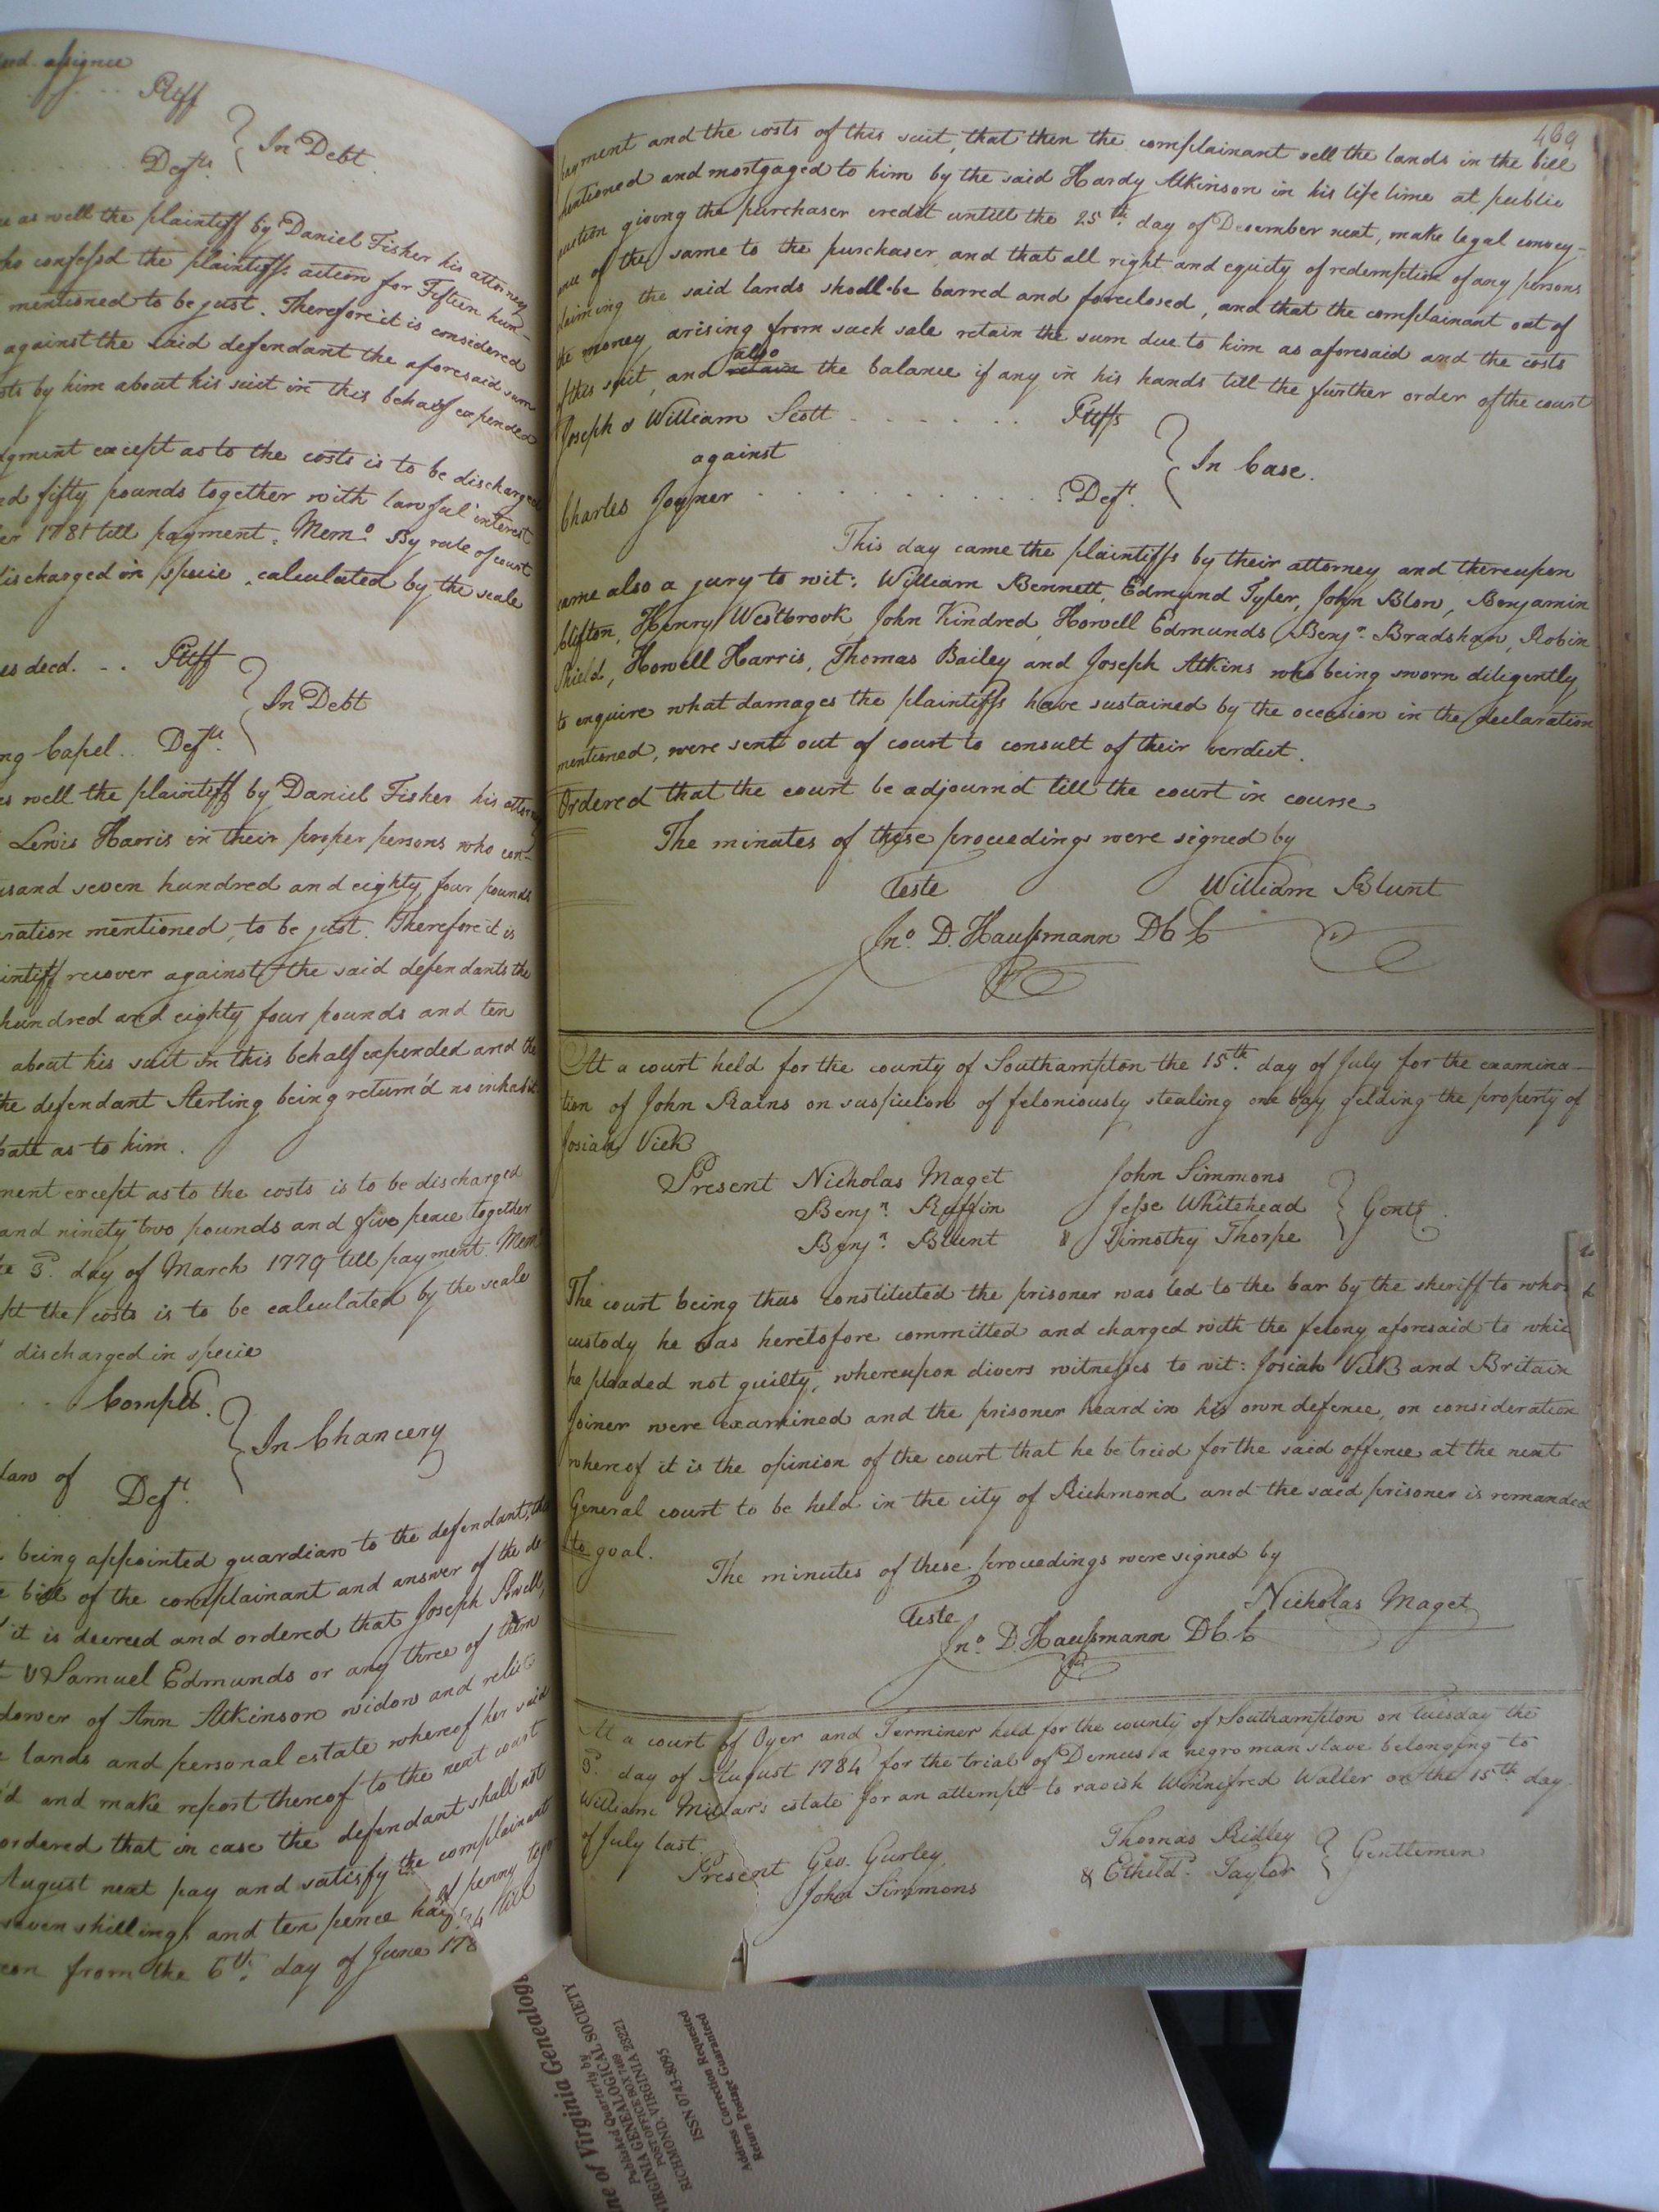 assignee
Pltff
In Debt
Defts.
as well the plaintiff by Daniel Fisher his attorney
who confessd the plaintiffs action for Fifteen hun-
mentioned to be just. Therefore it is considered
against the said defendant the aforesaid sum
by him about his suit in this behalf expended
except as to the costs is to be discharged
fifty pounds together with lawful interest
1781 till payment. Memo. By rule of court
discharged in specie, calculated by the scale
decd. .. Pltff
In Debt
Capel .. Defts.
well the plaintiff by Daniel Fisher his attorney
Lewis Harris in their proper persons who con-
seven hundred and eighty four pounds
mentioned, to be just. Therefore it is
recover against the said defendants the
hundred and eighty four pounds and ten
about his suit in this behalf expended and the
the defendant Sterling being return'd no inhabit
as to him.
except as to the costs is to be discharged
and ninety two pounds and five pence together
3d. day of March 1779 till payment. Mem
the costs is to be calculated by the scale
discharged in specie
Complt.
In Chancery
law of
Deft.
being appointed guardian to the defendant, the
bill of the complainant and answer of the de-
it is decreed and ordered that Joseph Powell,
& Samuel Edmunds or any three of them
dower of Ann Atkinson widow and relict
lands and personal estate whereof her said
and make report thereof to the next court
ordered that in case the defendant shall not
August next pay and satisfy the complainant
seven shillings and ten pence half penny
from the 6th. day of June 1784 till
469
payment and the costs of this suit, that then the complainant sell the lands in the bill
mentioned and mortgaged to him by the said Hardy Atkinson in his life time at public
auction giving the purchaser credit untill the 25th. day of December next, make legal convey-
ance of the same to the purchaser, and that all right and equity of redemption of any persons
claiming the said lands shall be barred and foreclosed, and that the complainant out of
the money arising from such sale retain the sum due to him as aforesaid and the costs
of this suit, and retain also the balance if any in his hands till the further order of the court
Joseph & William Scott . . . . . . Pltffs
against
In Case.
Charles Joyner . . . . . . . . . . Deft.
This day came the plaintiffs by their attorney and thereupon
came also a jury to wit: William Bennett, Edmund Tyler, John Blow, Benjamin
Clifton, Henry Westbrook, John Kindred, Howell Edmunds, Benjn. Bradshaw, Robin
Shield, Howell Harris, Thomas Bailey and Joseph Atkins who being sworn diligently
to enquire what damages the plaintiffs have sustained by the occasion in the declaration
mentioned, were sent out of court to consult of their verdict.
Ordered that the court be adjournd till the court in course
The minutes of these proceedings were signed by
Teste William Blunt
Jno. D. Haussmann DCC
At a court held for the county of Southampton the 15th. day of July for the examina-
tion of John Rains on suspicion of feloniously stealing one bay gelding the property of
Josiah Vick
Present Nicholas Maget John Simmons
Benjn. Ruffin Jesse Whitehead Gentn.
Benjn. Blunt & Timothy Thorpe
The court being thus constituted the prisoner was led to the bar by the sheriff to whose
custody he was heretofore committed and charged with the felony aforesaid to which
he pleaded not guilty, whereupon divers witnesses to wit: Josiah Vick and Britain
Joiner were examined and the prisoner heard in his own defence, on consideration
whereof it is the opinion of the court that he be tried for the said offence at the next
General court to be held in the city of Richmond and the said prisoner is remanded
to goal.
The minutes of these proceedings were signed by
Teste Nicholas Maget
Jno. D. Haussmann DCC
At a court of Oyer and Terminer held for the county of Southampton on Tuesday the
3d. day of August 1784 for the trial of Demus a negro man slave belonging to
William Millar's estate for an attempt to ravish Winnifred Waller on the 15th. day
of July last.
Present Geo. Gurley Thomas Ridley Gentlemen
John Simmons & Etheld. Taylor
of Virginia Genealog
Published Quarterly by
VIRGINIA GENEALOGICAL SOCIETY
POST OFFICE BOX 7469
RICHMOND, VIRGINIA 23221
ISSN 0743-8095
Address Correction Requested
Return Postage Guaranteed